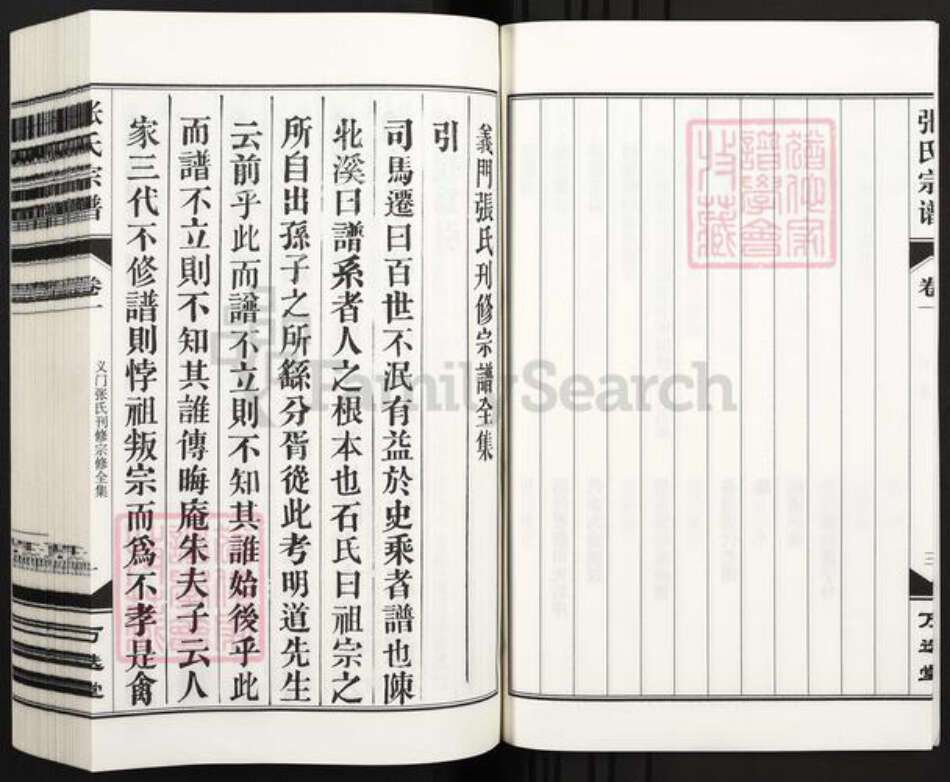 张氏宗谱
卷一
三
万选堂
義門張氏刊修宗譜全集
引
司馬遷曰百世不泯有益於史乘者譜也陳
北溪曰譜系者人之根本也石氏曰祖宗之
所自出孫子之所繇分胥從此考明道先生
云前乎此而譜不立則不知其誰始後乎此
而譜不立則不知其誰傳晦庵朱夫子云人
家三代不修譜則悖祖叛宗而爲不孝是禽
张氏宗谱
卷一
义门张氏刊修宗修全集
一
万选堂
譜學會
收藏
FamilySearch